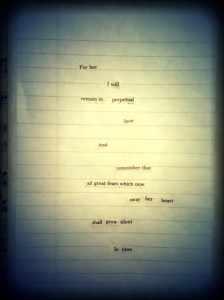 For her
I will
remain in perpetual
love
And
remember that
all great fears which now
over her heart
shall grow silent
In time